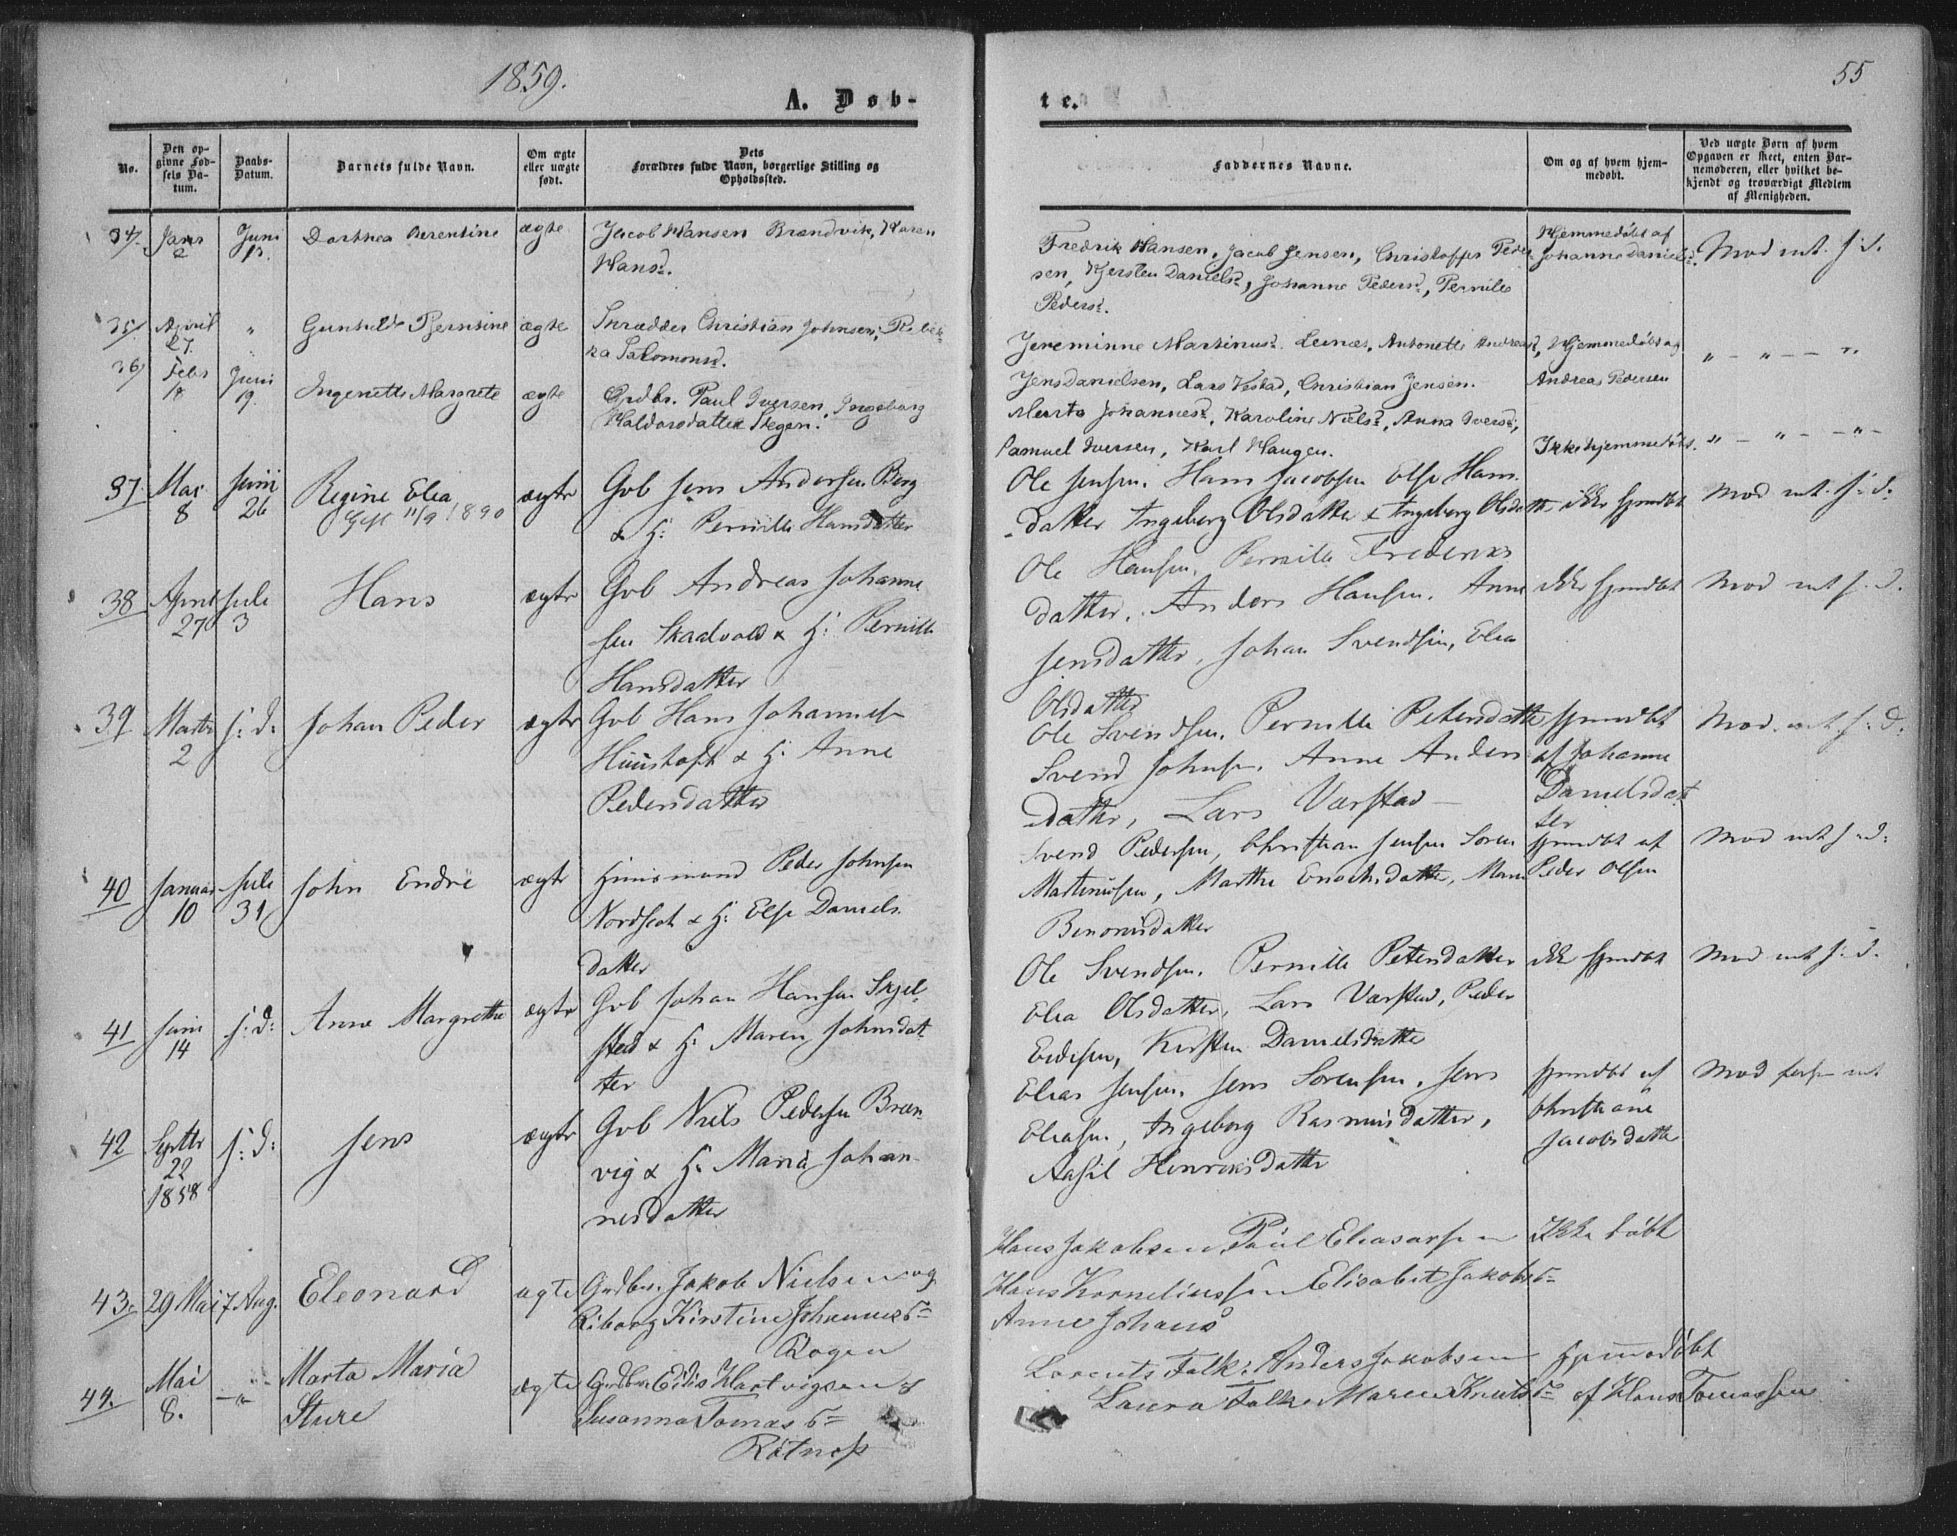 1859.
55
A. Døb-
te.
No.
Den op-
givne Fød-
sels Da-
tum.
Daabs-
Datum.
Barnets fulde Navn.
Om ægte
eller uægte
født.
Dets
Forældres fulde Navn, borgerlige Stilling og
Opholdssted.
Faddernes Navne.
Om og af hvem hjem-
medøbt.
Ved uægte Børn af hvem
Opgaven er skeet, enten Bar-
nemoderen, eller hvilket be-
kjendt og troværdigt Medlem
af Menigheden.
34. Janr 2 Juni 13. Dorthea Berentine ægte Jacob Hansen Brændvik, Karen
Hansd.
Fredrik Hansen, Jacob Jensen, Christoffer Peder-
sen, Kjersten Danielsd, Johanne Pedersd, Pernille
Pedersd.
Hjemmedøbt af
Johanna Danielsd.
Mod nt. s: d.
35 April 27. " Gunhild Berntine ægte Skrædder Christian Johnsen, Rebek-
ka Salomonsd.
Jereminne Martinusd. Leines, Antonette Andreasd,
Jens Danielsen, Lars Vestad, Christian Jensen.
Hjemmedøbt og
Andreas Pedersen
" - " - - "
36 Febr 18 Juni 19. Ingenette Margrete ægte Grdbr. Paul Iversen, Ingeborg
Haldorsdatter Stegen.
Marta Johannesd, Karoline Nielsd, Anna Iversd,
Samuel Iversen, Karl Haugen.
Ikke hjemmedøbt.
" - " - - " -
37. Mai 8 Juni 26 Regine Elea
Gift 11/9 1890
ægte Gvb Jens Andersen Berg
& H: Pernille Hansdatter
Ole Jensen, Hans Jacobsen Else Hans-
datter Ingeborg Olsdatter & Ingeborg Olsdatt
ikke hjmdbt
Mod nt. s: d:
38 April 27 Juli 3 Hans ægte Gvb Andreas Johanne
sen Skaalvold & H: Pernille
Hansdatter
Ole Hansen, Pernille Frederiks
datter, Anders Hansen, Anne
Jensdatter, Johan Svendsen, Elea
Olsdatter
ikke hjmdbt Mod nt s: d.
39 Marts 2 s: d: Johan Peder ægte Gvb Hans Johannes-
Huustoft & H: Anne
Pedersdatter
Ole Svendsen, Pernille Petersdatter
Svend Johnsen, Anne Anders
datter, Lars Varstad
hjmdbt
af Johanne
Danielsdat
ter
Mod. nt s: d.
40 Januar 10 Juli 31 John Endre ægte Huusmand Peder Johnsen
Nordscot & H: Else Daniels
datter
Svend Pedersen, Christian Jensen Søren
Martinusen, Marthe Enochsdatter, Maren
Benonisdatter
hjmdbt af
Peder Olsen
Mod nt s: d:
41 Juni 14 s: d: Anne Margrethe ægte Gvb Johan Hansen Skjel-
stad & H: Maren Johnsdat
ter
Ole Svendsen, Pernille Petersdatter
Elea Olsdatter, Lars Varstad, Peder
Endresen, Kirsten Danielsdatter
ikke hjmdbt Mod nt s: d.
42 Septbr 22 1858 s: d: Jens ægte Gvb Niels Pedersen Bræn
vig & H: Maria Johan
nesdatter
Elias Jensen, Jens Sørensen, Jens
Eliasen, Ingeborg Rasmusdatter,
Aasel Henriksdatter
hjmdbt af
Christiane
Jacobsdatter
Mod nt
43. 29 Mai 7 Aug. Eleonard ægte Grdbr. Jakob Nielsen og
Riborg Kirstine Johannesdr
Rogen
Hans Jakobsen, Paul Eleasarsen
Hans Korneliussen Elisabet Jakobsdr
Anne Johans
Ikke døbt
44. Mai 8. -"- Marta Maria
Sture
ægte Grdbr Edis Hartvigsen &
Susanna Tomasdr
Røtnes
Lorents Falk: Anders Jakobsen
Laura Falk Maren Knutsdr
Hjemmedøbt
af Hans Tomassen